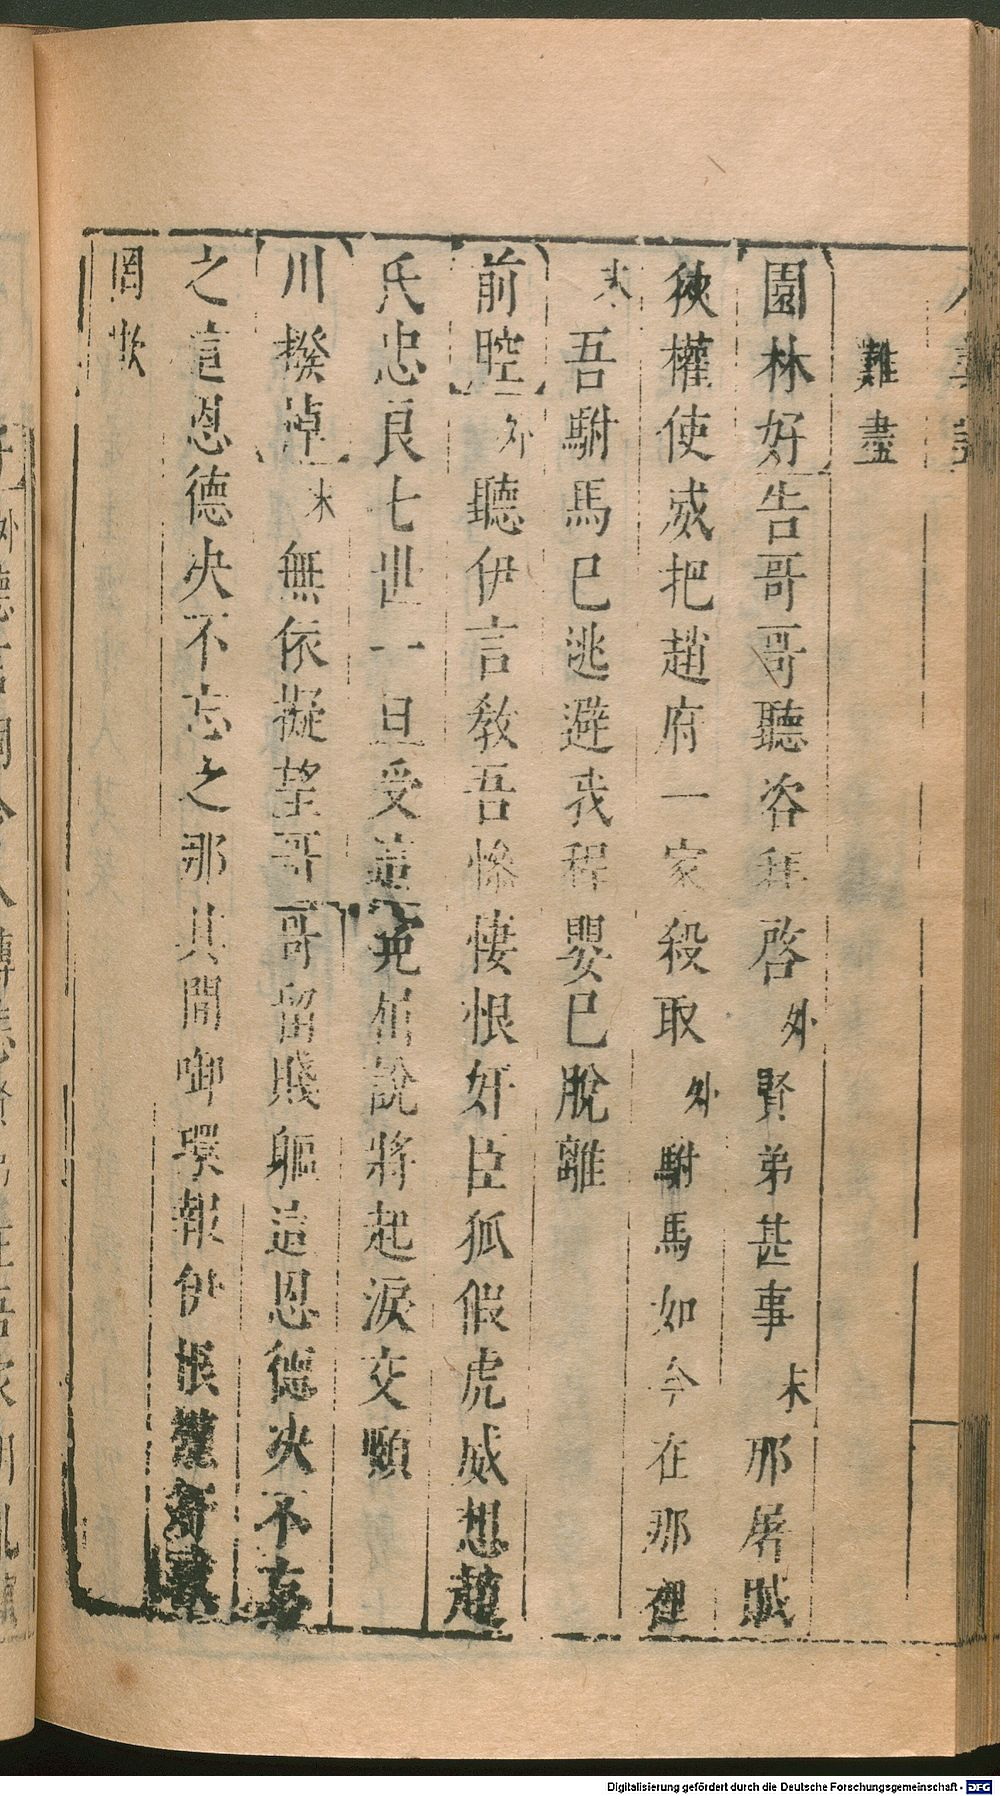 難盡
園林好告哥哥聽咨拜啓外賢弟甚事末那屠賊
使權使威把趙府一家殺取外駙馬如今在那裡
末吾駙馬已逃避我程嬰已脫離
前腔外聽伊言教吾慘悽恨奸臣狐假虎威想趙
氏忠良七世一旦受這冤屈說將起淚交頤
川撥淖末無依擬望哥哥留賤軀這恩德决不忘
之這恩德决不忘之那其間啣環報伊恨
罔欺
Digitalisierung gefördert durch die Deutsche Forschungsgemeinschaft - DFG